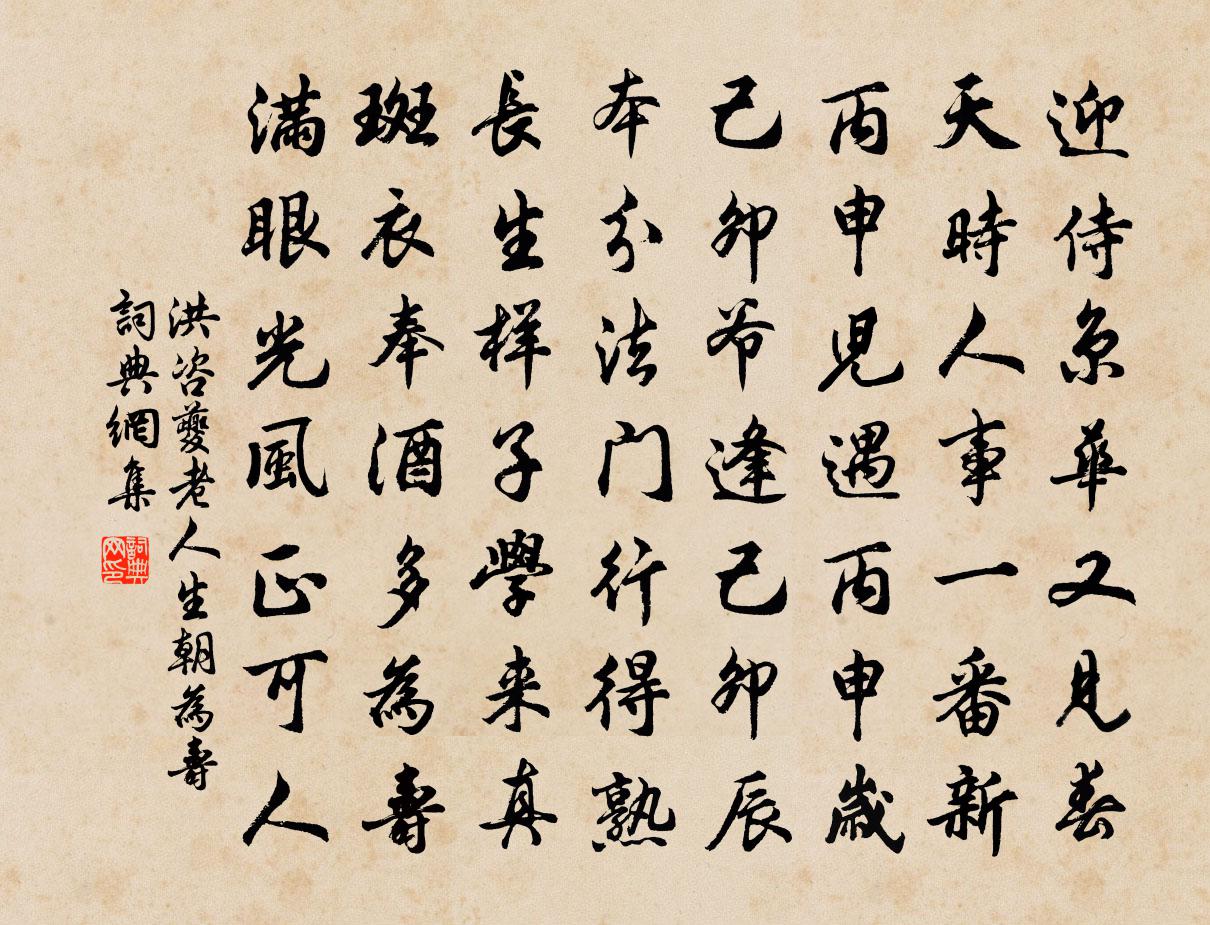 迎侍京華又見春
天時人事一番新
丙申児遇丙申歲
己卯爺逢己卯辰
本分法門行得熟
長生样子學来真
斑衣奉酒多為壽
滿眼光風正可人
洪咨夔老人生朝為壽
詞典網集
詞典网印